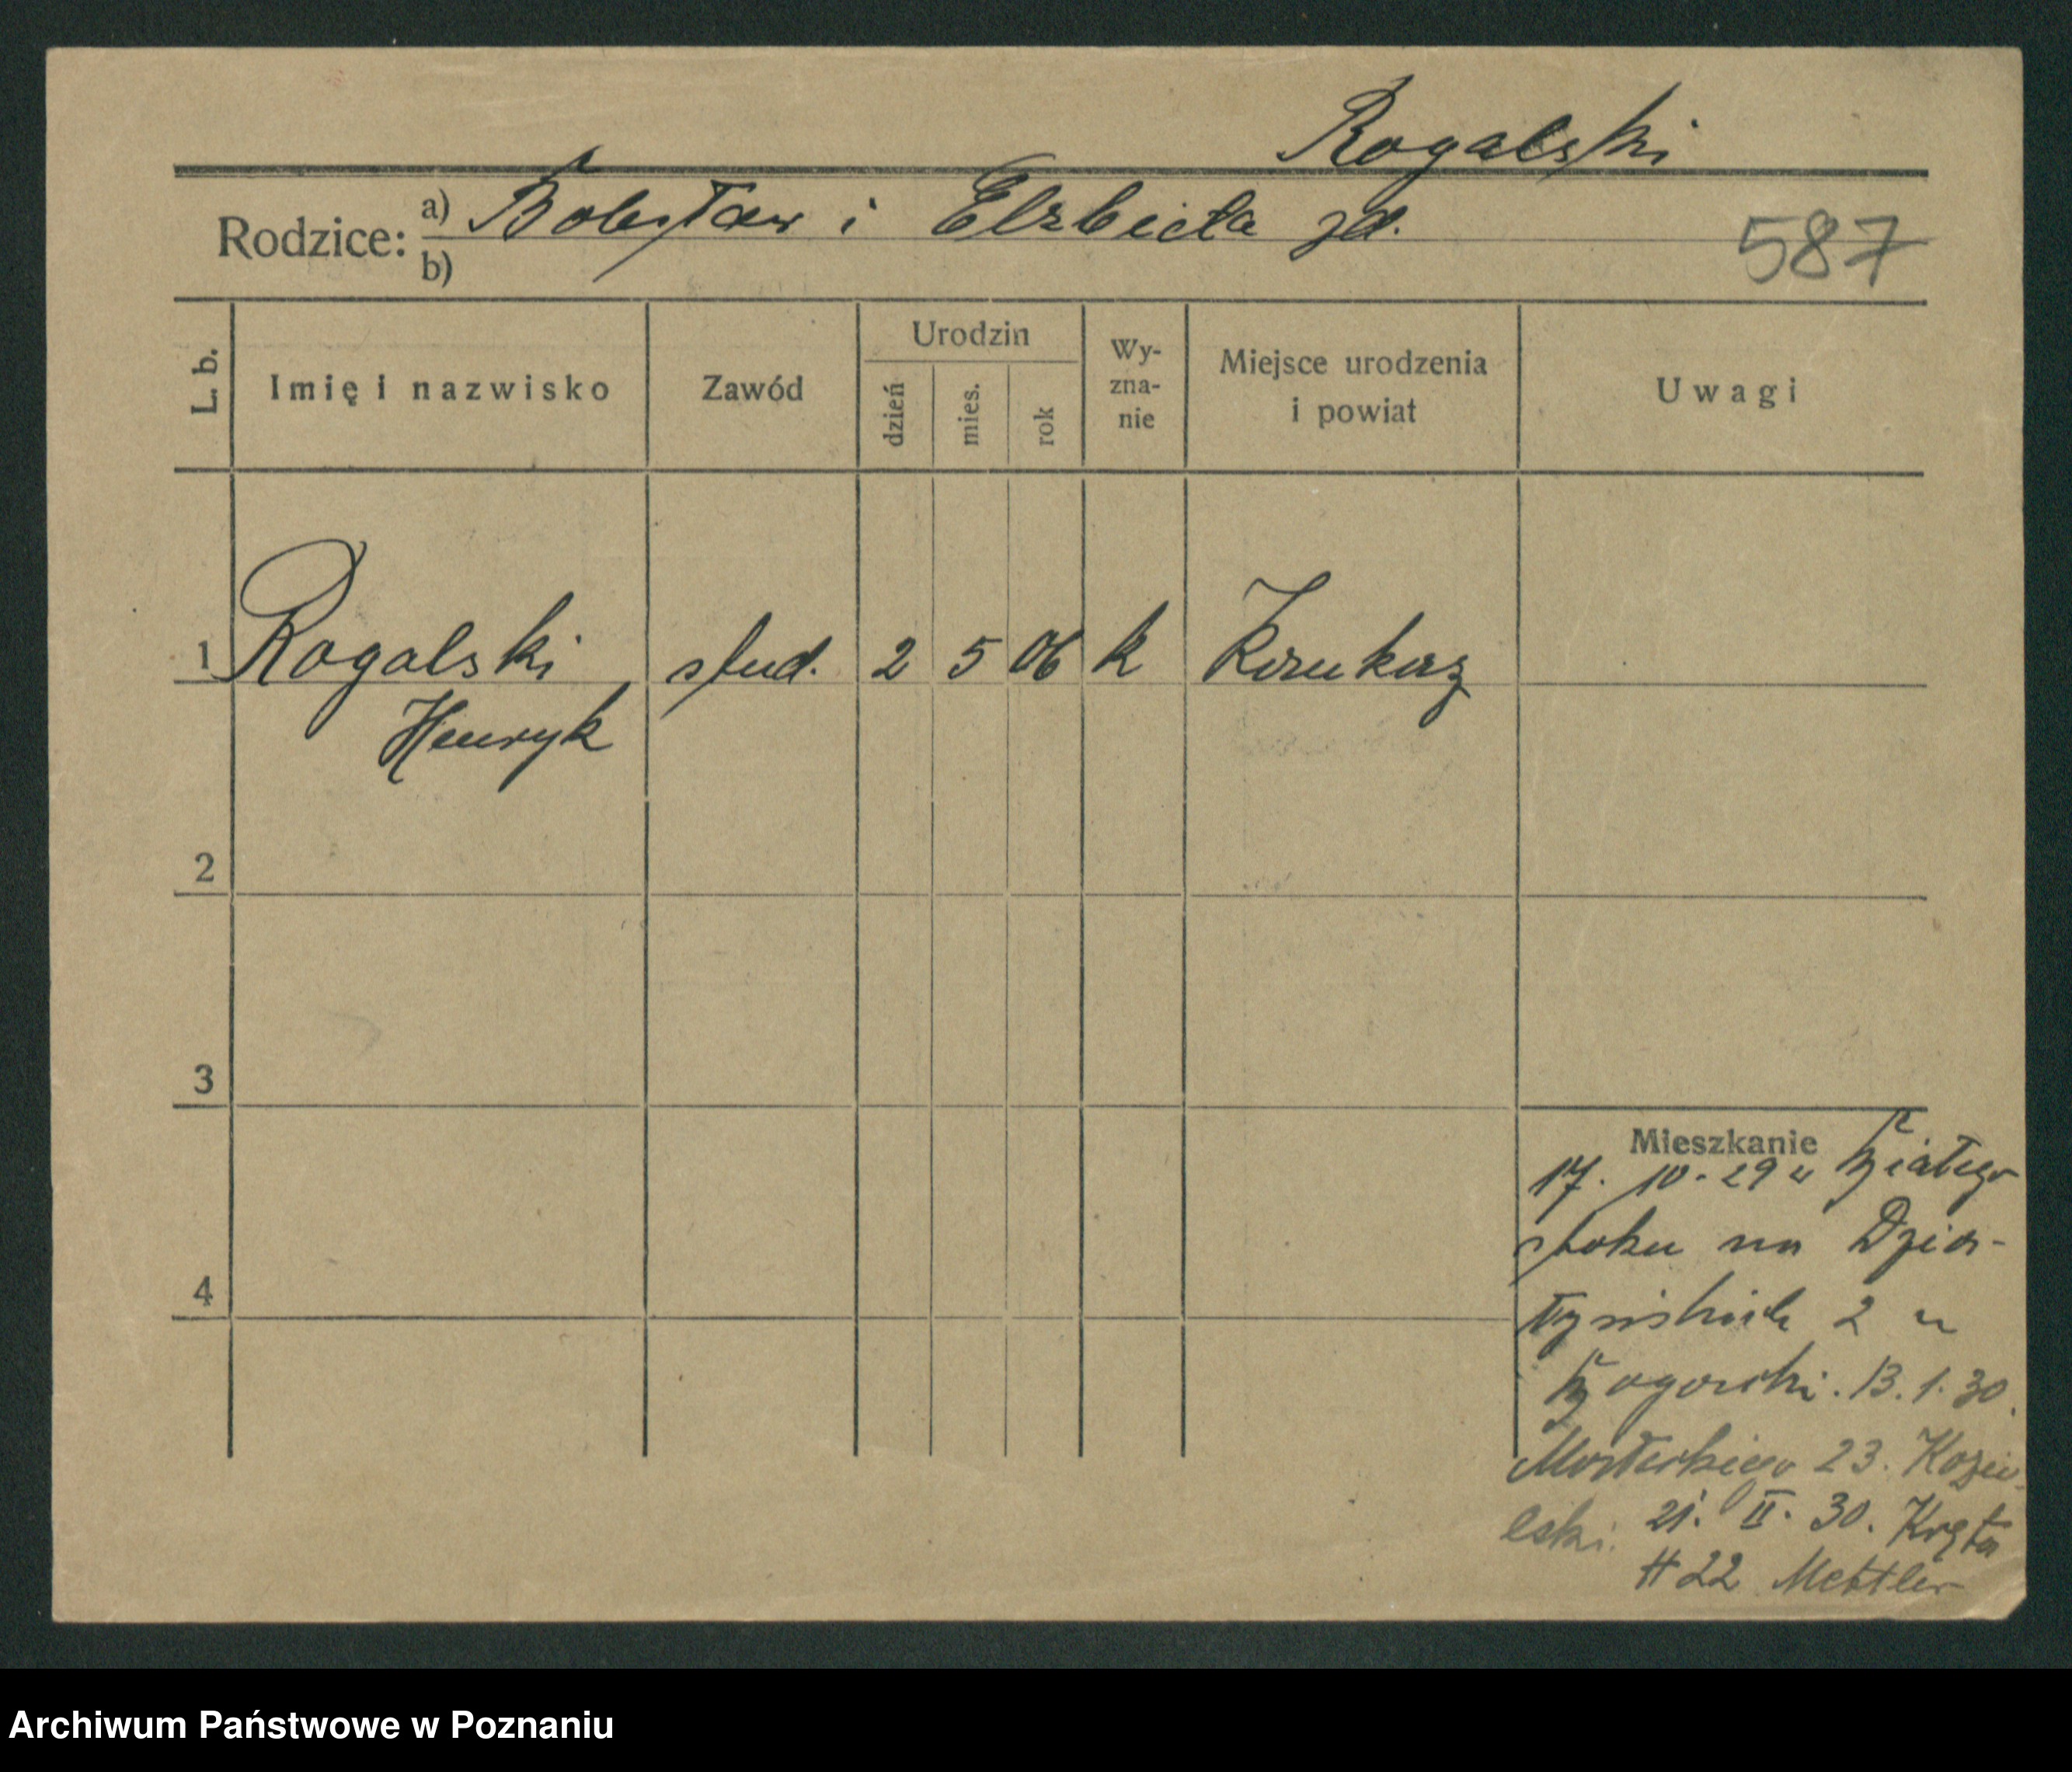 Rogalski
Rodzice: a) Bolesław i Elżbieta zd.
b)
587
L. b.
Imię i nazwisko
Zawód
Urodzin
dzień
mies.
rok
Wy-
zna-
nie
Miejsce urodzenia
i powiat
Uwagi
1 Rogalski stud. 2 5 06 k
Henryk
2
3
4
Mieszkanie
17. 10. 29 z Białego
stoku na Dzia-
łyńskich 2 u
13. 1. 30.
23. Kozie
lski. 21. II. 30. Kręta
22 Mettler
Archiwum Państwowe w Poznaniu